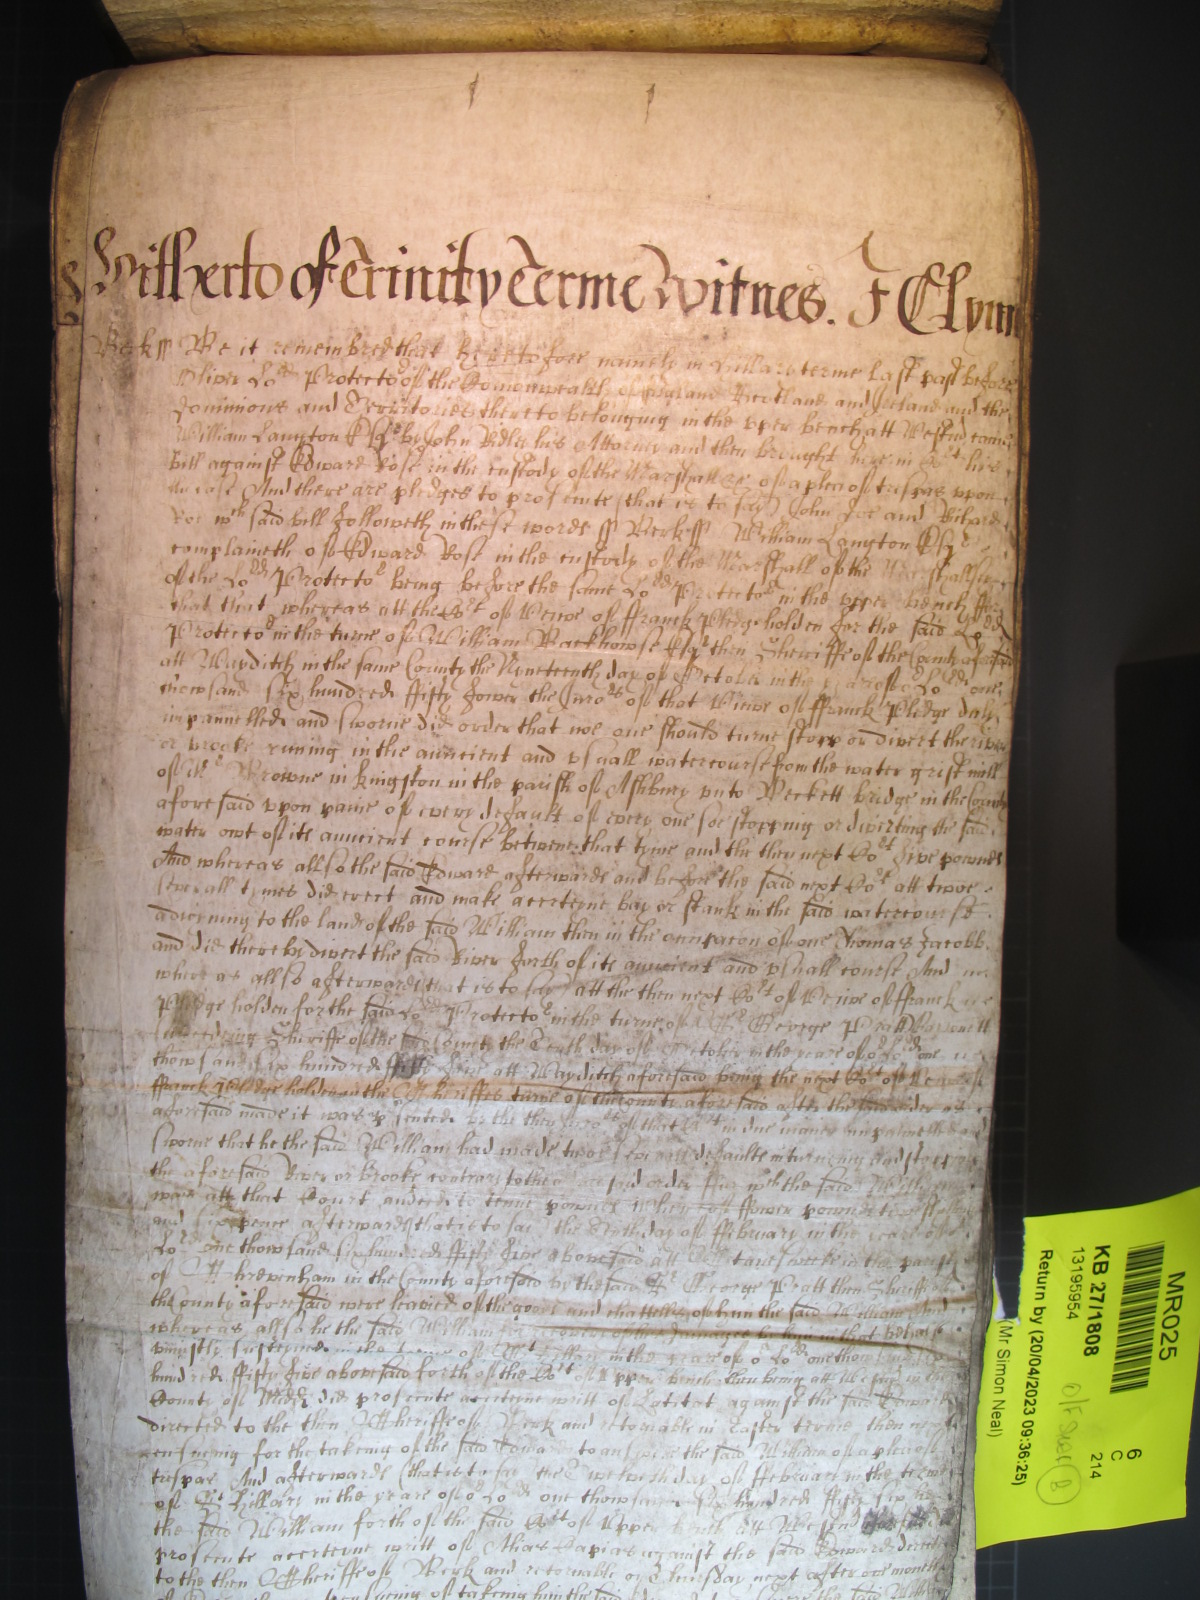 Hitherto of Trinity Terme Witnes. J Glynn
Berk ss Be it remembred that heretofore namely in Hillary terme last past before
Oliver Lord Protector of the Comonwealth of England Scotland and Ireland and the
dominions and Territories thereto belonging in the upper bench att Westm came
William Langton Esqr by John Adler his Attorney and then brought here in Cort his
bill against Edward Rose in the custody of the Marshall &c of a plea of trespas upon
the case And there are pledges to prosecute (that is to say) John Doe and Richard
Roe wch said bill followeth in these words ss Berk ss William Langton Esqr
complaineth of Edward Rose in the custody of the Marshall of the Marshallsea
of the Lord Protector being before the same Lord Protector in the upper bench ffor
that that whereas att the Cort of Veiwe of ffranck Pledge holden for the said Lord
Protector in the turne of William Backhowse Esqr then Sherriffe of the County aforesaid
att Wayditch in the same County the Nyneteenth day of October in the yeare of or Lord one
thowsand six hundred fifty fower the Jurors of that Veiwe of ffranck Pledge duly
impannelled and sworne did order that noe one should turne stopp or divert the river
or brooke runing in the auncient and usuall watercourse from the water grist mill
of Browne in Kingston in the parish of Ashbury unto Beckett bridge in the County
aforesaid upon paine of every default of every one soe stopping or diverting the said
water owt of its auncient course betwene that tyme and the then next Cort five pownds
And whereas allso the said Edward afterwards and before the said next Cort att twoe
severall tymes did erect and make a certeine bay or stank in the said watercourse
adioyning to the land of the said William then in the occupacon of one Thomas Jacobb
and did thereby divert the said River forth of its auncient and usuall course And
whereas allso afterwards (that is to say) att the then next Cort of Veiwe of ffranck
Pledge holden for the said Lord Protector in the turne of Sr George Pratt Baronett
succeeding Sheriffe of the said County the Tenth day of October in the yeare of or Lord one
thowsand six hundred fifty five att Wayditch aforesaid being the next Cort of Veiwe of
ffranck Pledge holden in the Sheriffes turne of the County aforesaid after the said order as
aforesaid made it was presented by the then Jurors of that Cort in due maner impannelled and
sworne that he the said William had made twoe severall defaults in turneing and stopping
the aforesaid River or Brooke contrary to the aforesaid order ffor wch the said William
was att that Court amerced to tenne pownds Whereof fower pownds
and six pence afterwards that is to say the Sixth day of ffebruary in the yeare of or
Lord one thowsand six hundred fifty five abovesaid att in the parish
of Shrivenham in the County aforesaid by the said Sr George Pratt then Sheriffe of
the County aforesaid were leavied of the goods and chattells of him the said William And
whereas allso he the said William for recovery of his damages by him in that behalfe
uniustly susteyned in the terme of Snt Hillary in the yeare of or Lord one thowsand six
hundred fifty five abovesaid forth of the Cort of Upper bench then being att Westm in the
County of Midd did prosecute a certeine writt of Latitat against the said Edward
directed to the then Sheriffe of Berk and retornable in Easter terme then next
ensueing for the takeing of the said Edward to answere the said William of a plea of
trespas And afterwards that is to say the Twelveth day of ffebruary in the terme
of St Hillary in the yeare of or Lord one thowsand six hundred fifty six he
the said William forth of the said Cort of Upper bench att Westm did
prosecute a certeine writt of Alias Capias against the said Edward directed
to the then Sheriffe of Berk and retornable on Thursday next after one moneth
takeing him the said
MR025
KB 27/1808
13195954
6
C
214
Return by (20/04/2023 09:36:25)
(Mr Simon Neal)